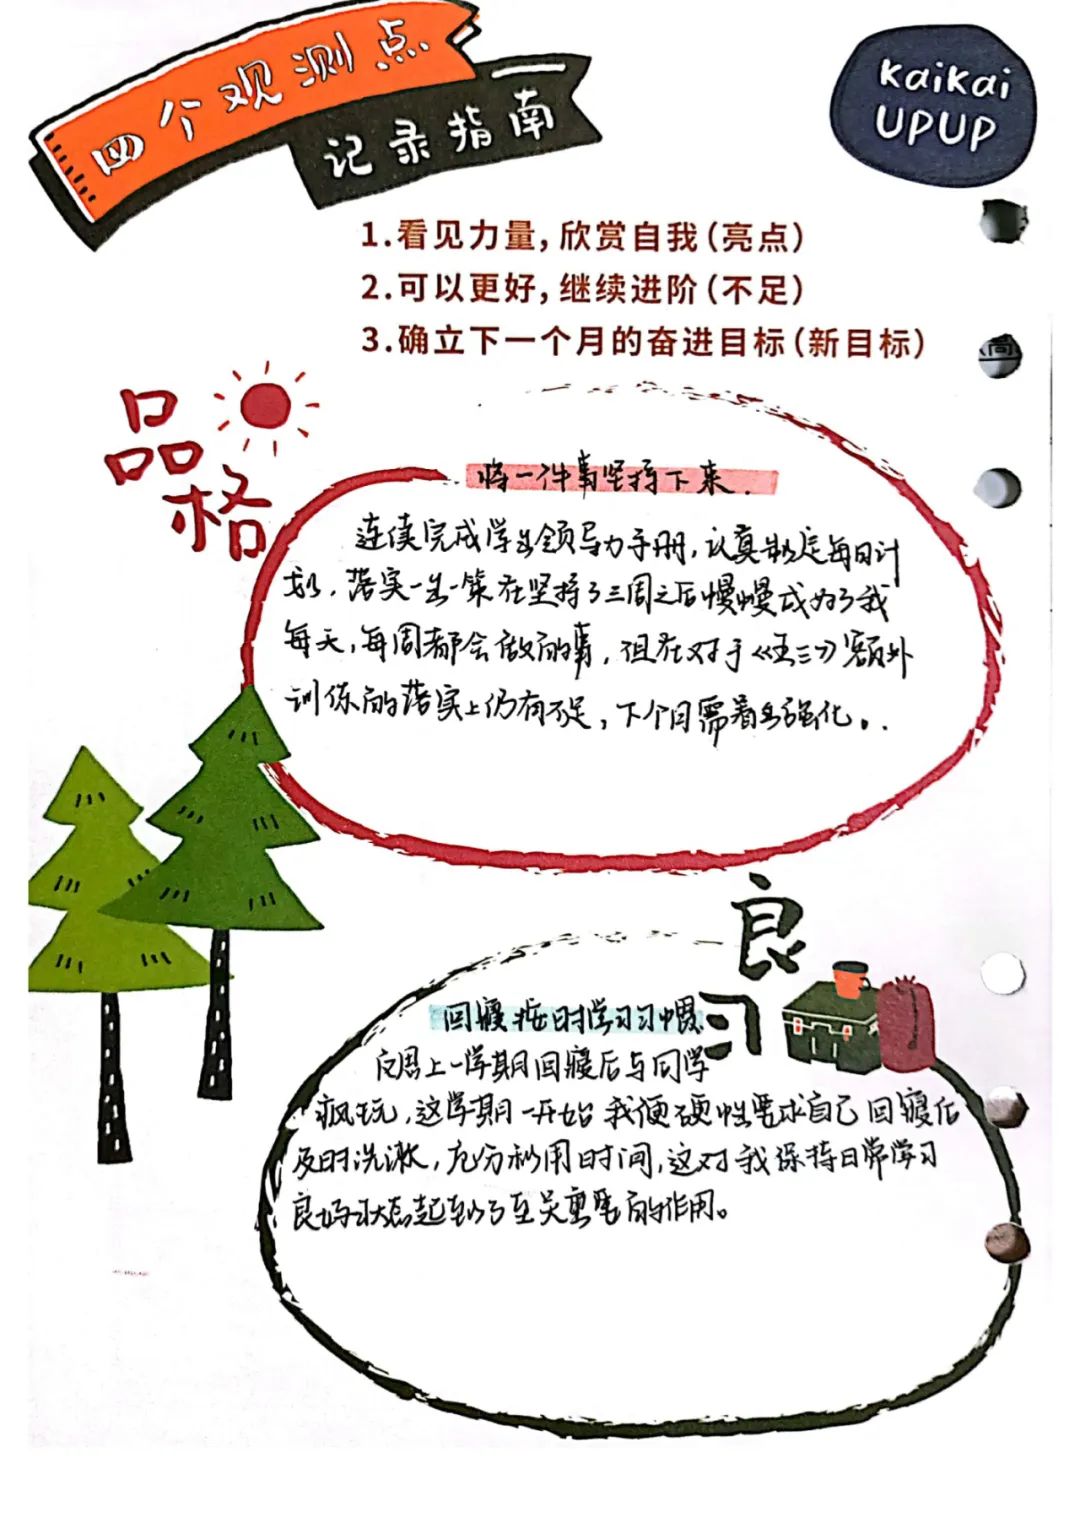 四个观测点
记录指南
KaiKai
UPUP
1.看见力量,欣赏自我(亮点)
2.可以更好,继续进阶(不足)
3.确立下一个月的奋进目标(新目标)
品格
将一件事坚持下来.
连续完成学生领导力手册,认真制定每日计
划,落实一生一策在坚持了三周之后慢慢成为了我
每天,每周都会做的事,但在对于《五三》额外
训练的落实上仍有不足,下个月需着手强化。
良习
回寝按时学习习惯
反思上一学期回寝后与同学
疯玩,这学期一开始我便硬性要求自己回寝后
及时洗漱,充分利用时间,这对我保持日常学习
良好状态起到了至关重要的作用。